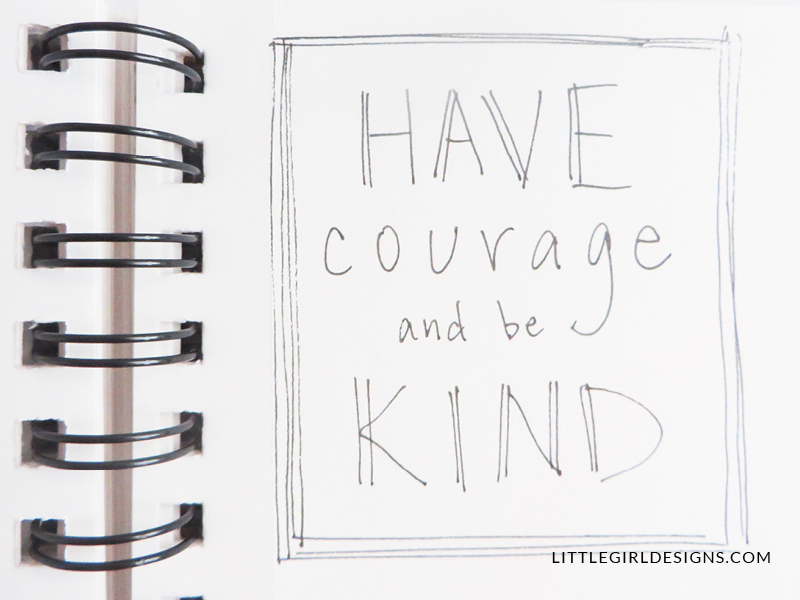 HAVE
courage
and be
KIND
LITTLEGIRLDESIGNS.COM